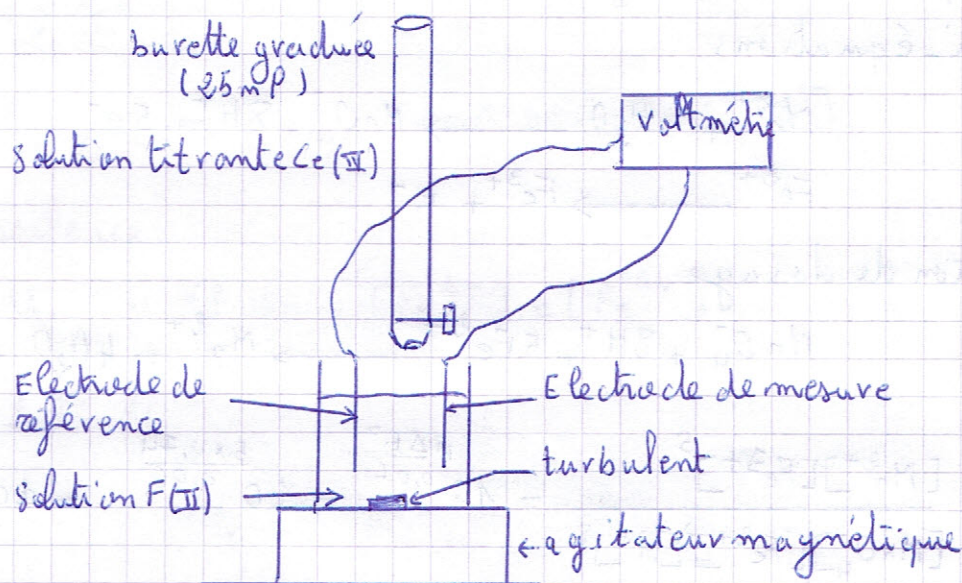 burette graduée
(25 ml)
voltmètre
solution titrante Ce (IV)
Electrode de
référence
Electrode de mesure
turbulent
solution F(II)
agitateur magnétique